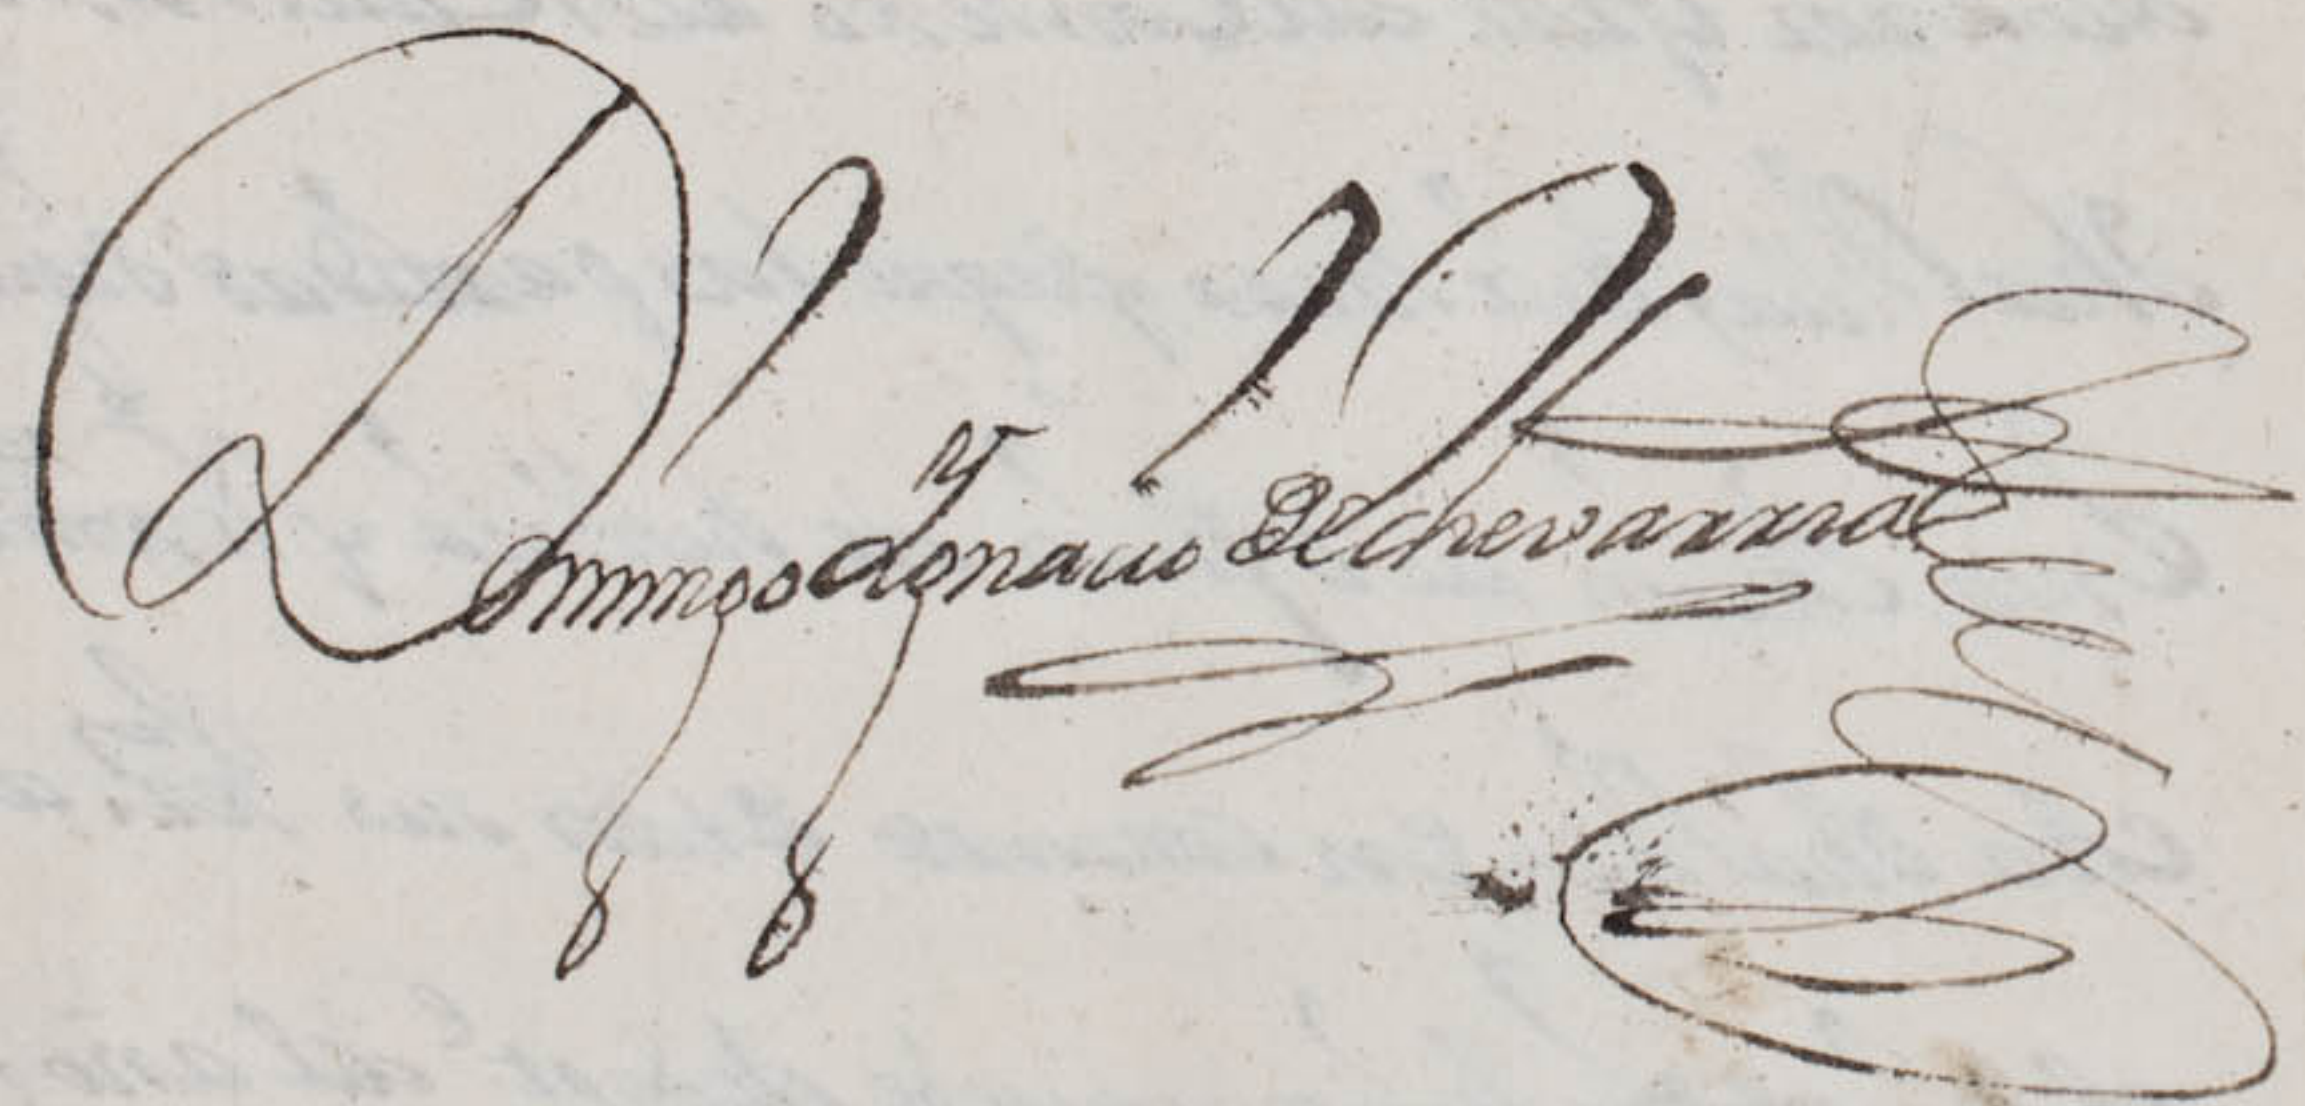 Domingo Ygnacio de Echevarria